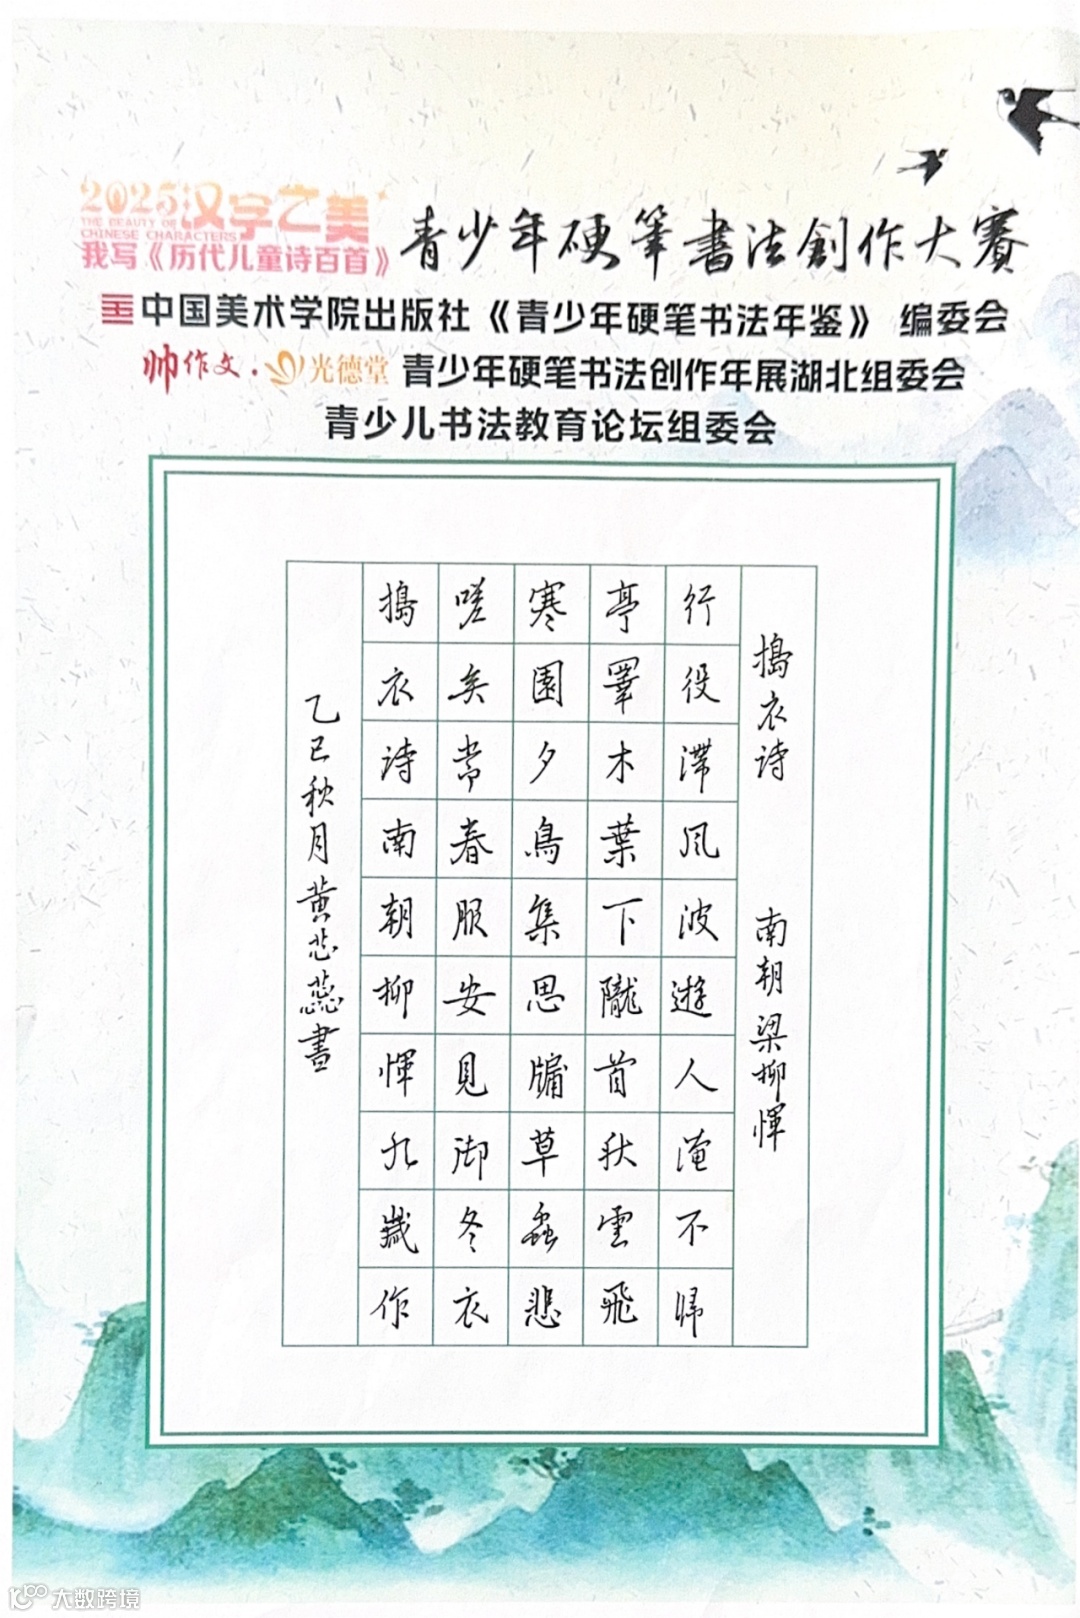 2025汉字之美
THE BEAUTY OF
CHINESE CHARACTERS
我写《历代儿童诗百首》
青少年硬筆書法創作大賽
中国美术学院出版社《青少年硬笔书法年鉴》 编委会
帅作文·光德堂 青少年硬笔书法创作年展湖北组委会
青少儿书法教育论坛组委会
搗衣诗 南朝梁柳惲
行役滞风波遊人淹不帰
亭皋木葉下隴首秋雲飛
寒園夕鳥集思牖草蟲悲
嗟矣常春服安見御冬衣
搗衣诗南朝柳惲九歲作
乙巳秋月黄芯蕊書
大数跨境